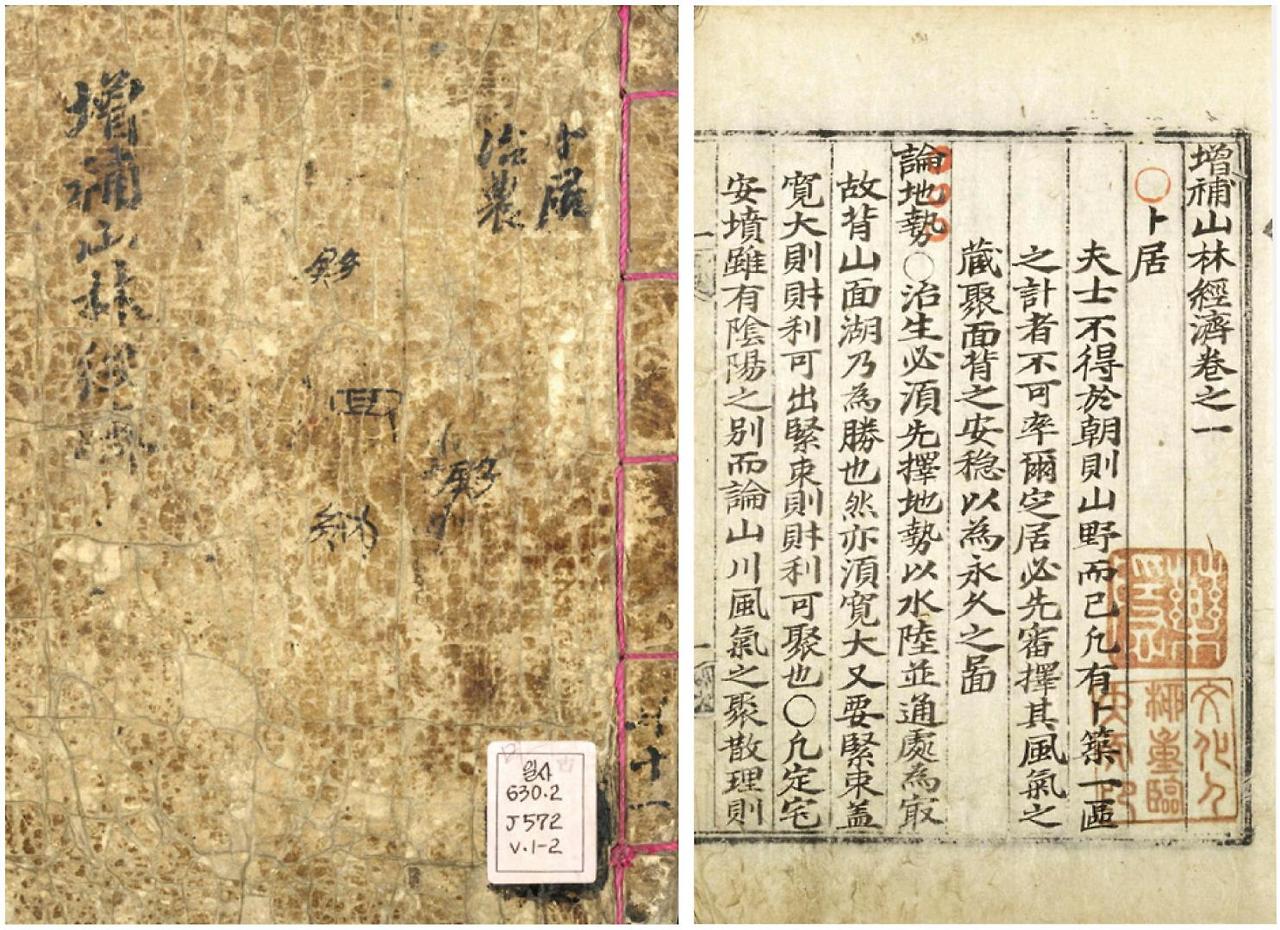 增補山林經濟
卜居
治農
왐사
630.2
J572
V.1-2
共十一
增補山林經濟卷之一
○卜居
夫士不得於朝則山野而已凢有卜築一區
之計者不可率爾定居必先審擇其風氣之
藏聚面背之安穏以為永久之啚
論地勢○治生必湏先擇地勢以水陸並通處為㝡
故背山面湖乃為勝也然亦湏寛大又要緊束盖
寛大則財利可出緊束則財利可聚也○凢定宅
安墳雖有陰陽之别而論山川風氣之聚散理則